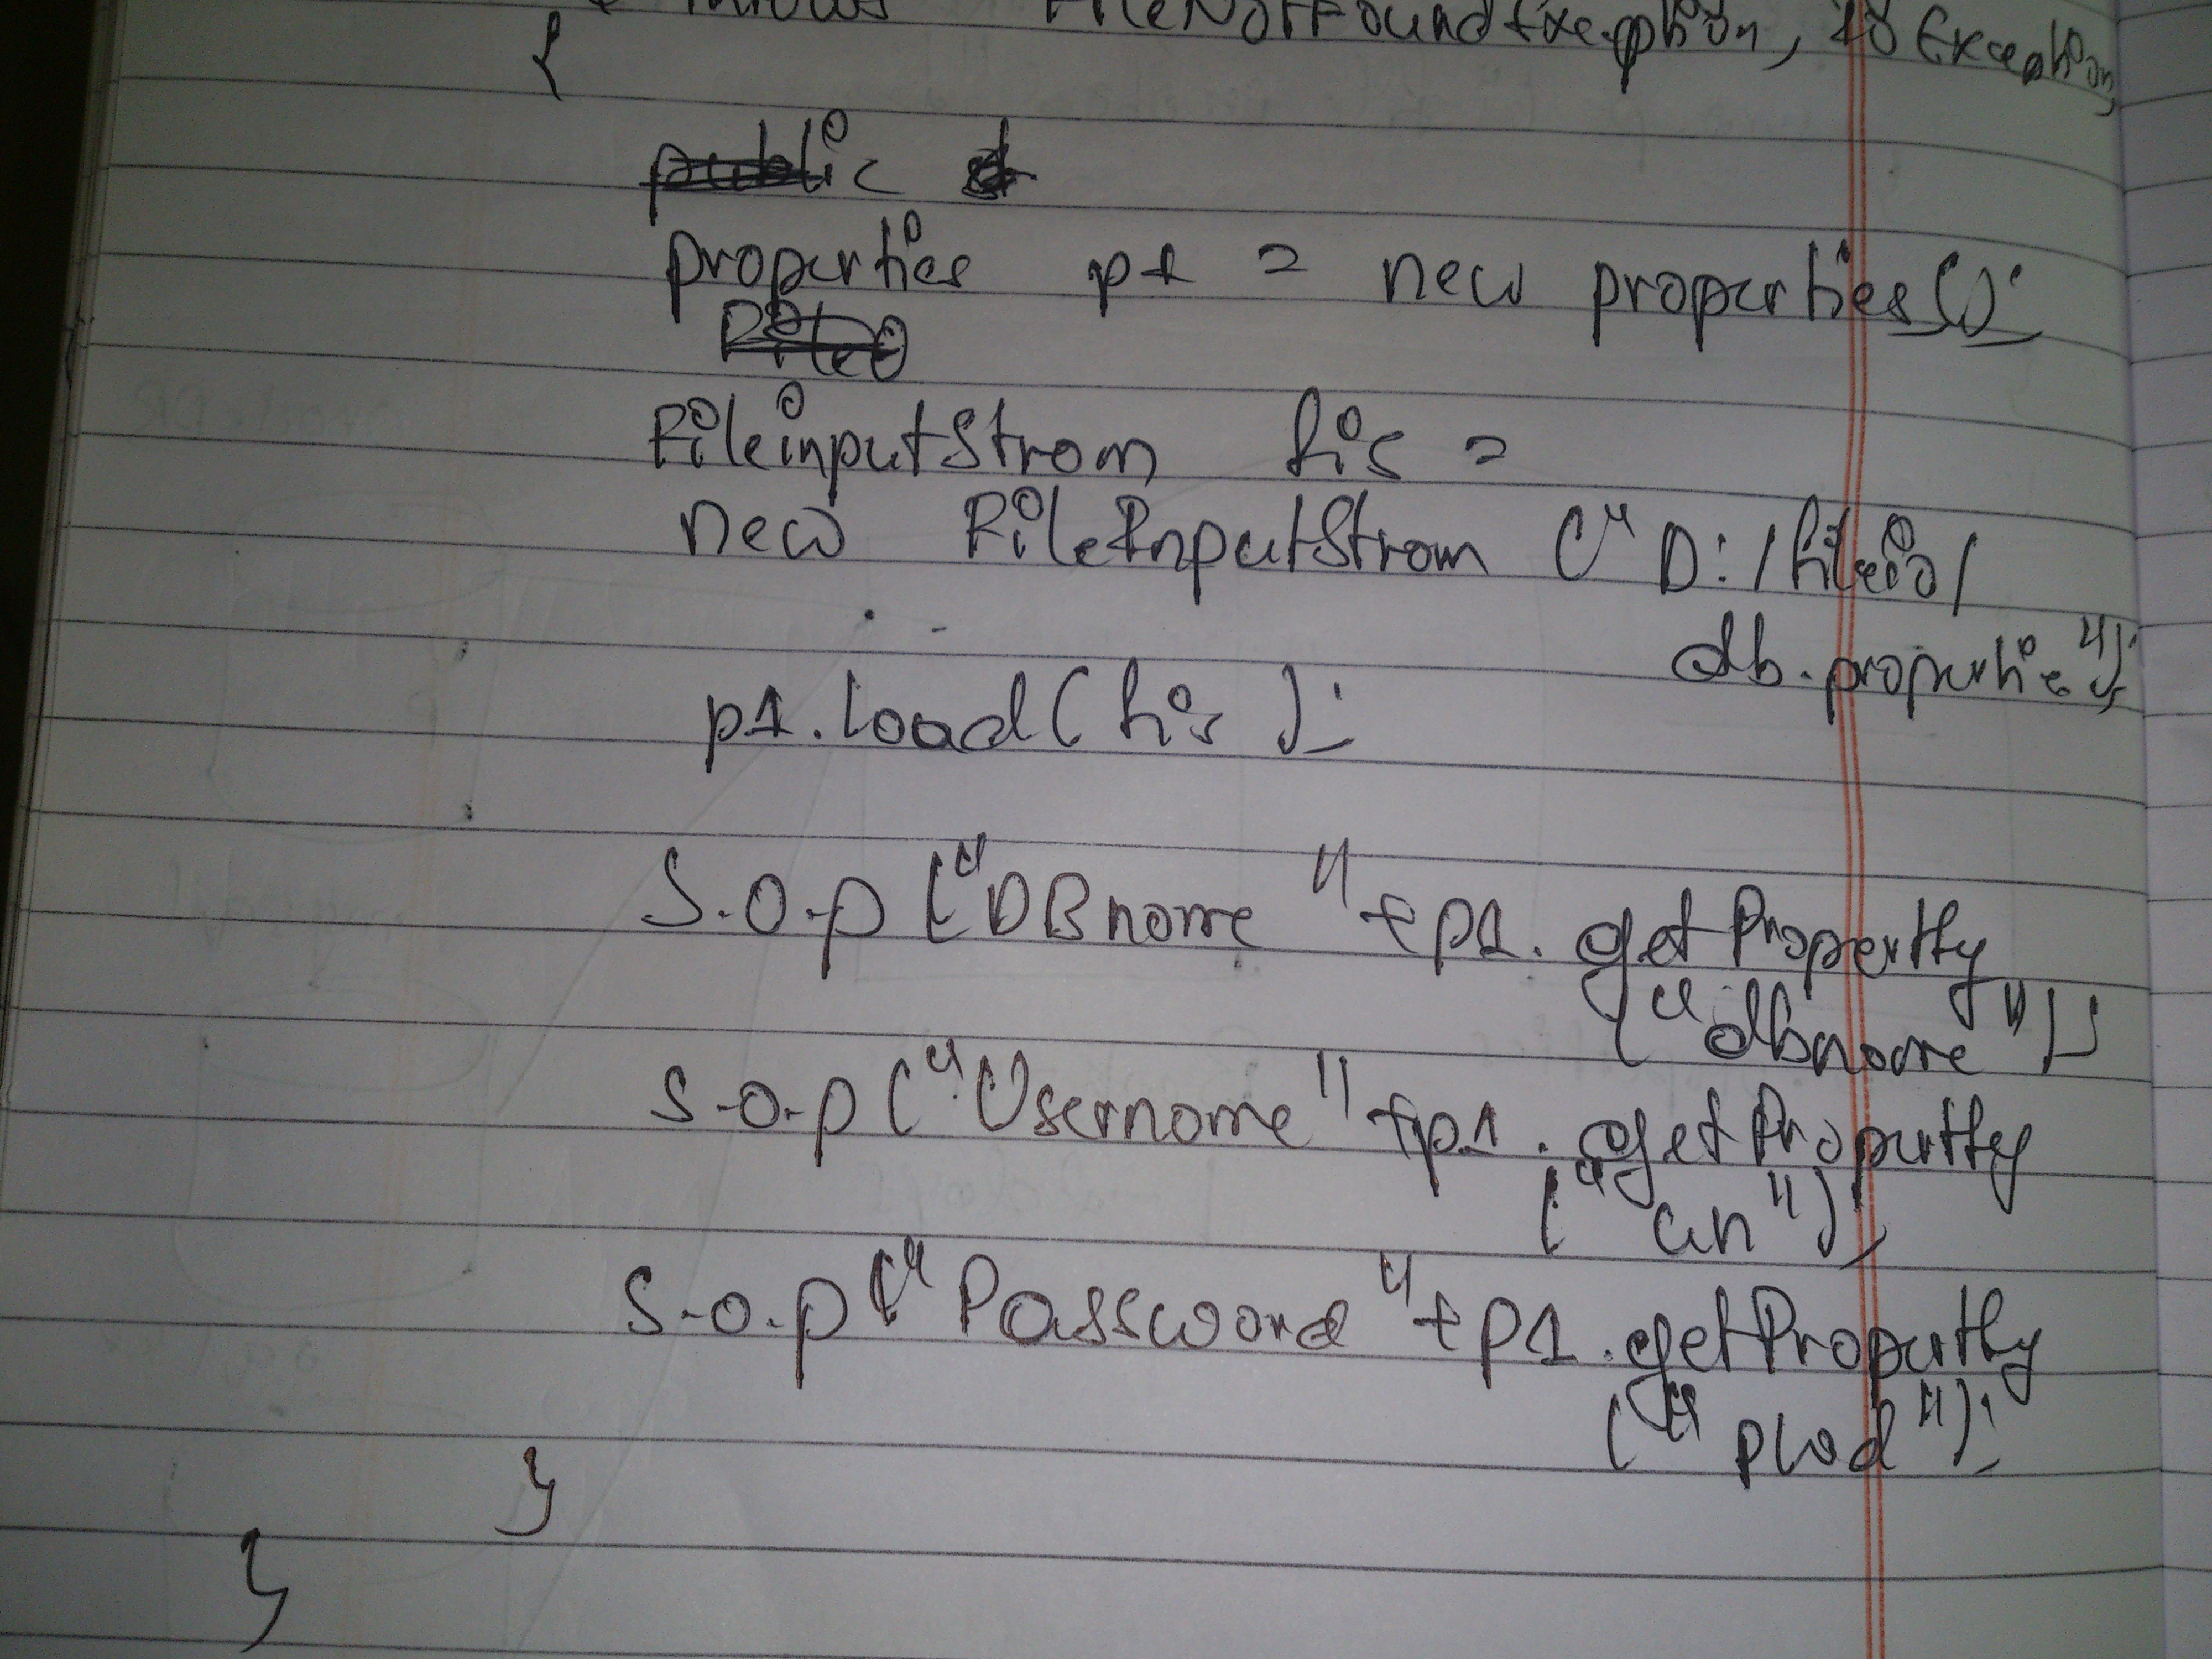 throws FileNotFoundException, IOException
{
public
properties p1 = new properties();
FileinputStream fis =
new FileInputStream ("D:/fileio/
db.properties");
p1.load(fis);
S.O.P ("DBname" +p1.getProperty
("dbname");
S.O.P ("Username" +p1.getProperty
("un");
S.O.P ("Password" +p1.getProperty
("pwd");
}
}